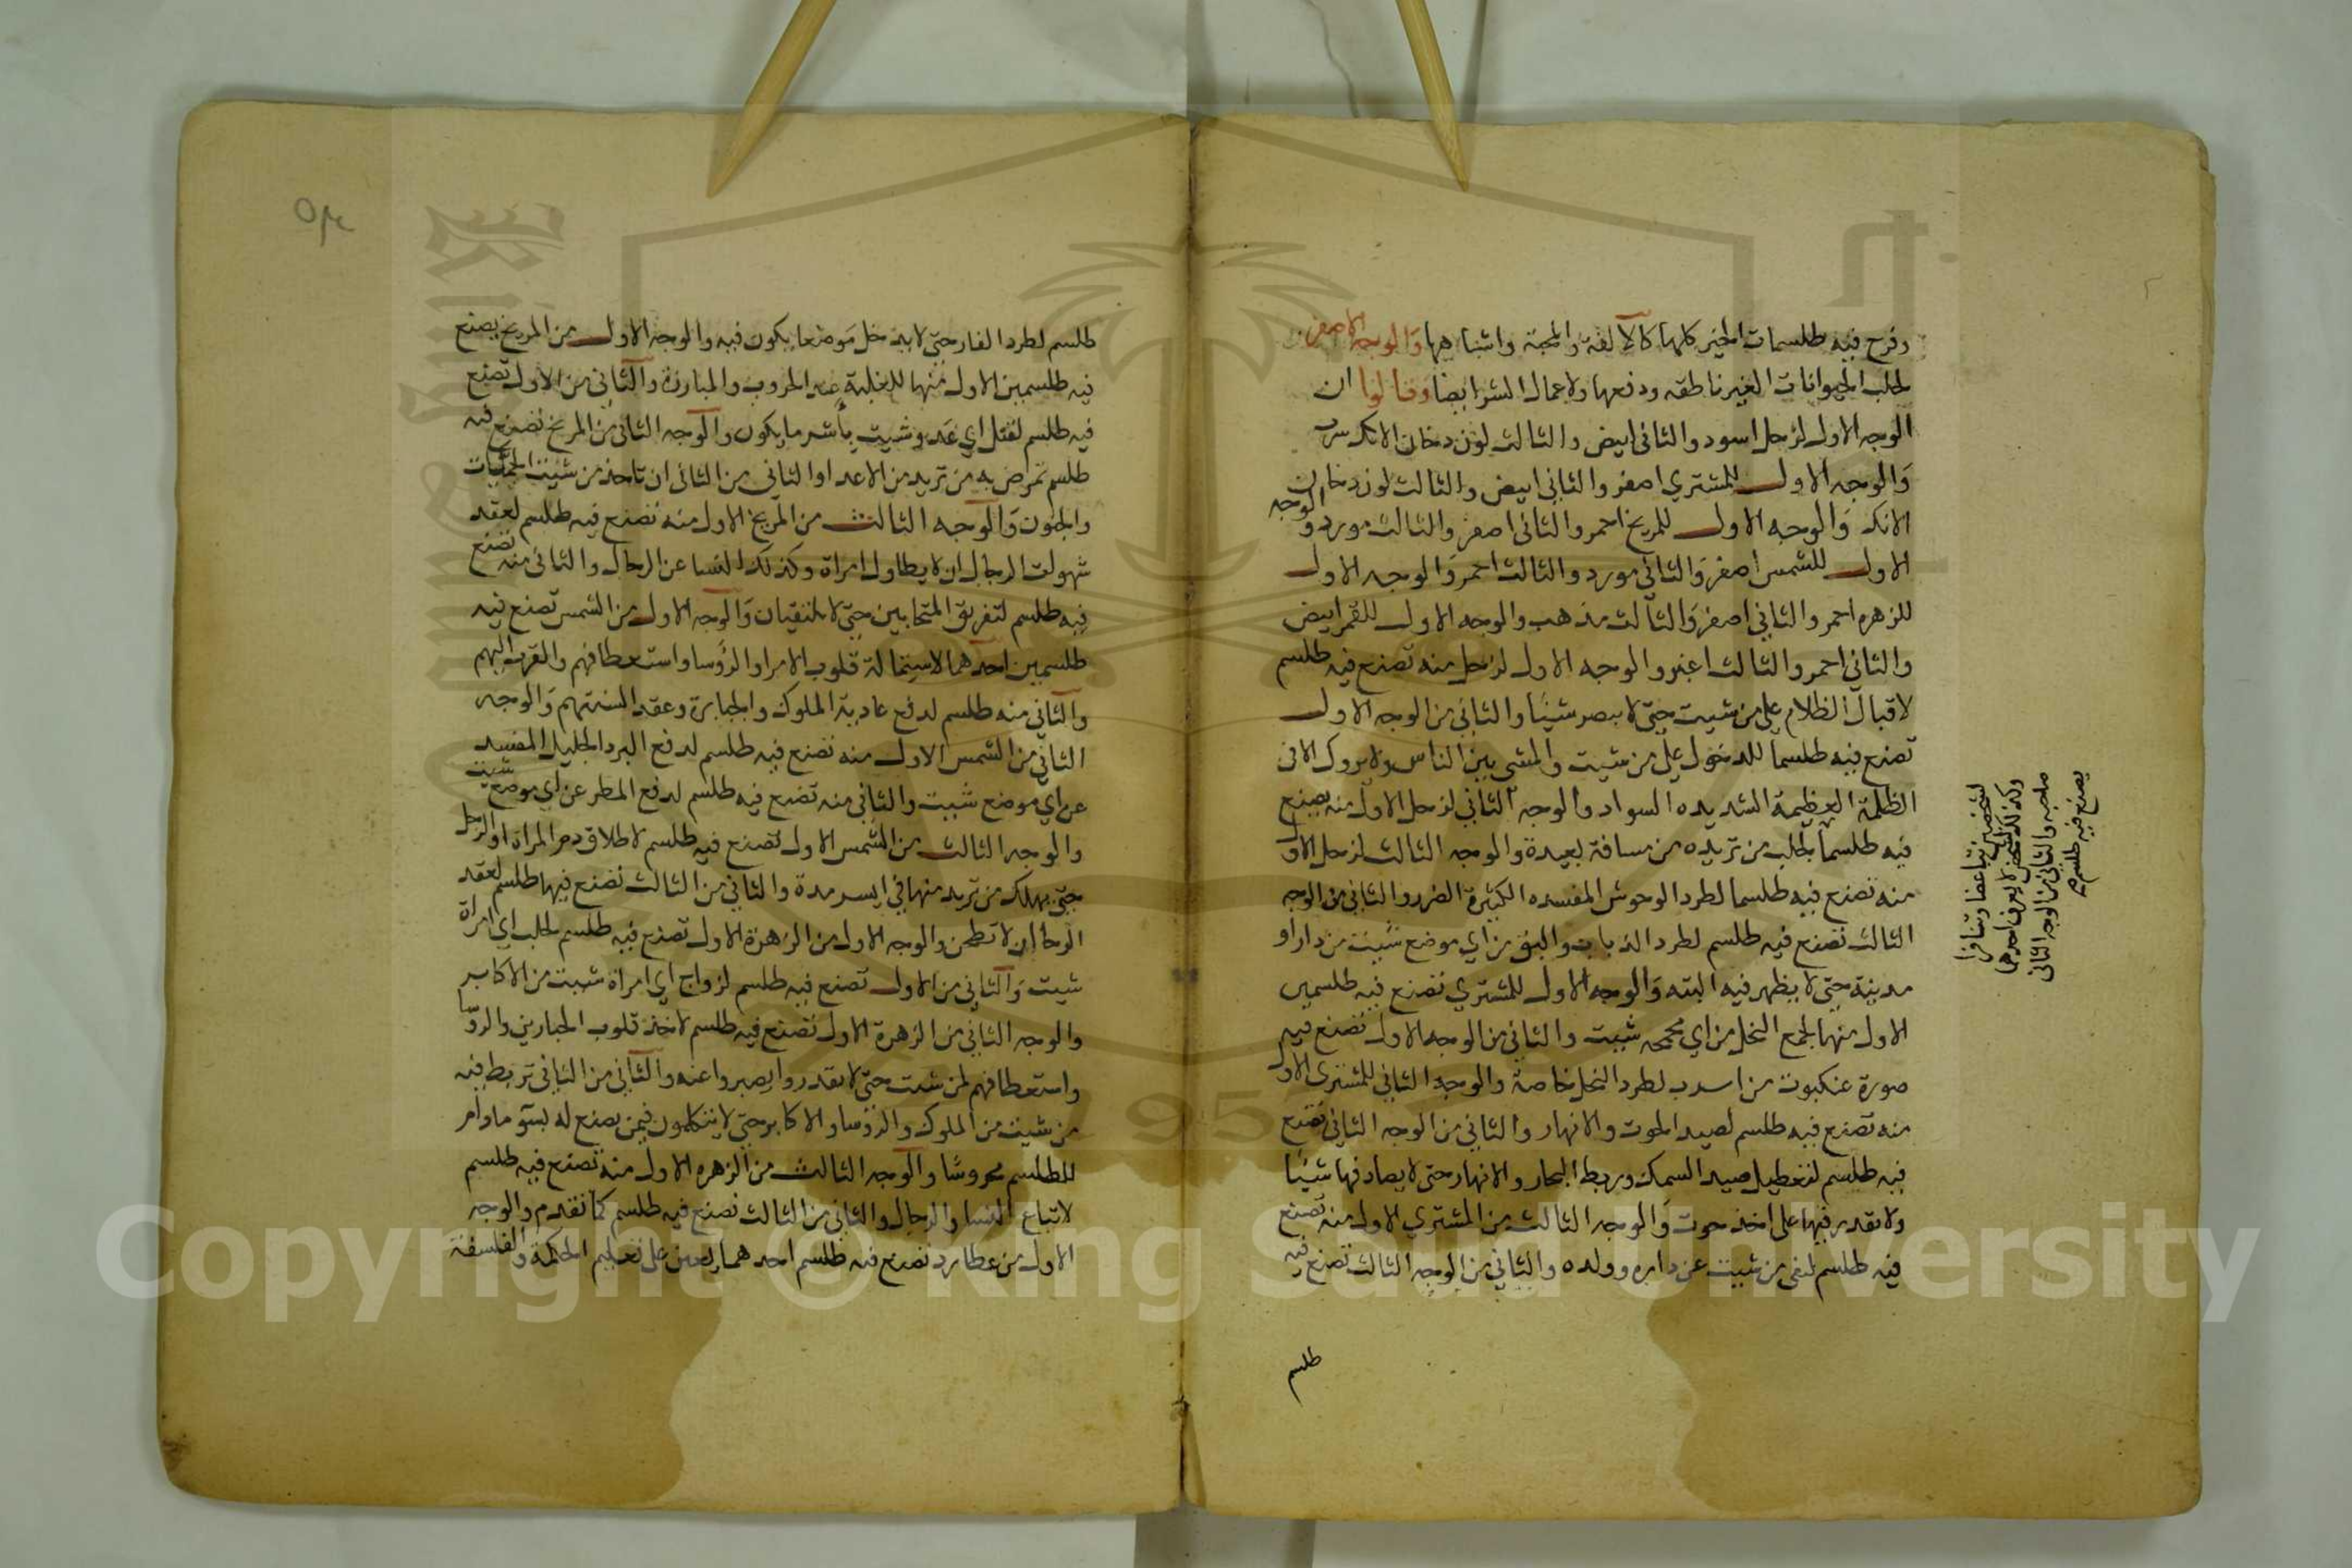 وفرح فيه طلسمات الخير كلها كالالفة والمحبة واشباهها والوجه الاصفر
لجلب الحيوانات الغير ناطقه ودفعها ولاعمال الشر ايضا وقالوا ان
الوجه الاول لزحل اسود والثاني ابيض والثالث لون دخان الانك سرب
والوجه الاول للمشتري اصفر والثاني ابيض والثالث لون دخان
الانك والوجه الاول للمريخ احمر والثاني اصفر والثالث مورد و الوجه
الاول للشمس اصفر والثاني مورد والثالث احمر والوجه الاول
للزهره احمر والثاني اصفر والثالث مذهب والوجه الاول للقمر ابيض
والثاني احمر والثالث اغبر والوجه الاول لزحل منه تصنع فيه طلسم
لاقبال الظلام على من شيت حتى لا يبصر شيئا والثاني من الوجه الاول
تصنع فيه طلسما للدخول على من شيت والمشي بين الناس ولا يروك الا في
الظلمة العظيمة الشديده السواد والوجه الثاني لزحل الاول منه يصنع
فيه طلسما لجلب من تريده من مسافة بعيدة والوجه الثالث لزحل الاول
منه تصنع فيه طلسما لطرد الوحوش المفسده الكثيرة الضرر والثاني من الوجه
الثالث تصنع فيه طلسم لطرد الذباب والبق من اي موضع شيت من دار او
مدينة حتى لا يظهر فيه البته والوجه الاول للمشتري تصنع فيه طلسمين
الاول منها لجمع النحل من اي محجه شيت والثاني من الوجه الاول تصنع فيه
صورة عنكبوت من اسرب لطرد النحل خاصة والوجه الثاني للمشتري الاول
منه تصنع فيه طلسم لصيد الحوت والانهار والثاني من الوجه الثاني تصنع
فيه طلسم لتعطيل صيد السمك وربط البحار والانهار حتى لا يصاد فيها شيئا
ولا يقدر فيها على اخذ حوت والوجه الثالث من المشتري الاول منه تصنع
فيه طلسم لنفي من شيت عن داره وولده والثاني من الوجه الثالث تصنع فيه
طلسم
لشخصين تباغضا وتنافرا
وكذلك لا يعرف احدهما
صاحبه والثاني من الوجه الثاني
يصنع فيه طلسم
طلسم لطرد الفار حتى لا يدخل موضعا يكون فيه والوجه الاول من المريخ يصنع
فيه طلسمين الاول منها للغلبة عند الحروب والمبارزة والثاني من الاول تصنع
فيه طلسم لقتل اي عدو شيت بأشر ما يكون والوجه الثاني من المريخ تصنع فيه
طلسم تمرض به من تريد من الاعدا والثاني من الثاني ان تاخذ من شيت الحميات
والجنون والوجه الثالث من المريخ الاول منه تصنع فيه طلسم لعقد
شهوات الرجال ان لا يطاول امراة وكذلك للنسا عن الرجال والثاني منه تصنع
فيه طلسم لتفريق المتحابين حتى لا يلتقيان والوجه الاول من الشمس تصنع فيه
طلسمين احدهما لاستمالة قلوب الامرا والرؤسا واستعطافهم والقرب اليهم
والثاني منه طلسم لدفع عادية الملوك والجبابرة وعقد السنتهم والوجه
الثاني من الشمس الاول منه تصنع فيه طلسم لدفع البرد الجليد المفسد
عن اي موضع شيت والثاني منه تصنع فيه طلسم لدفع المطر عن اي موضع شيت
والوجه الثالث من الشمس الاول تصنع فيه طلسم لاطلاق دم المراة او الرجل
حتى يهلك من تريد منها في ايسر مدة والثاني من الثالث تصنع فيها طلسم لعقد
الوحا ان لا تطحن والوجه الاول من الزهرة الاول تصنع فيه طلسم لجلب اي امراة
شيت والثاني من الاول تصنع فيه طلسم لزواج اي امراة شيت من الاكابر
والوجه الثاني من الزهرة الاول تصنع فيه طلسم لاخذ قلوب الجبارين والروسا
واستعطافهم لمن شيت حتى لا يقدروا يصبروا عنه والثاني من الثاني تربط فيه
من شيت من الملوك والرؤسا والاكابر حتى لا يتكلمون فيمن يصنع له بسو ما دام
للطلسم محروسا والوجه الثالث من الزهره الاول منه تصنع فيه طلسم
لاتباع النسا والرجال والثاني من الثالث تصنع فيه طلسم كما تقدم والوجه
الاول من عطارد تصنع فيه طلسم احدهما يعين على تعليم الحكمة والفلسفة
Copyright © King Saud University
1957